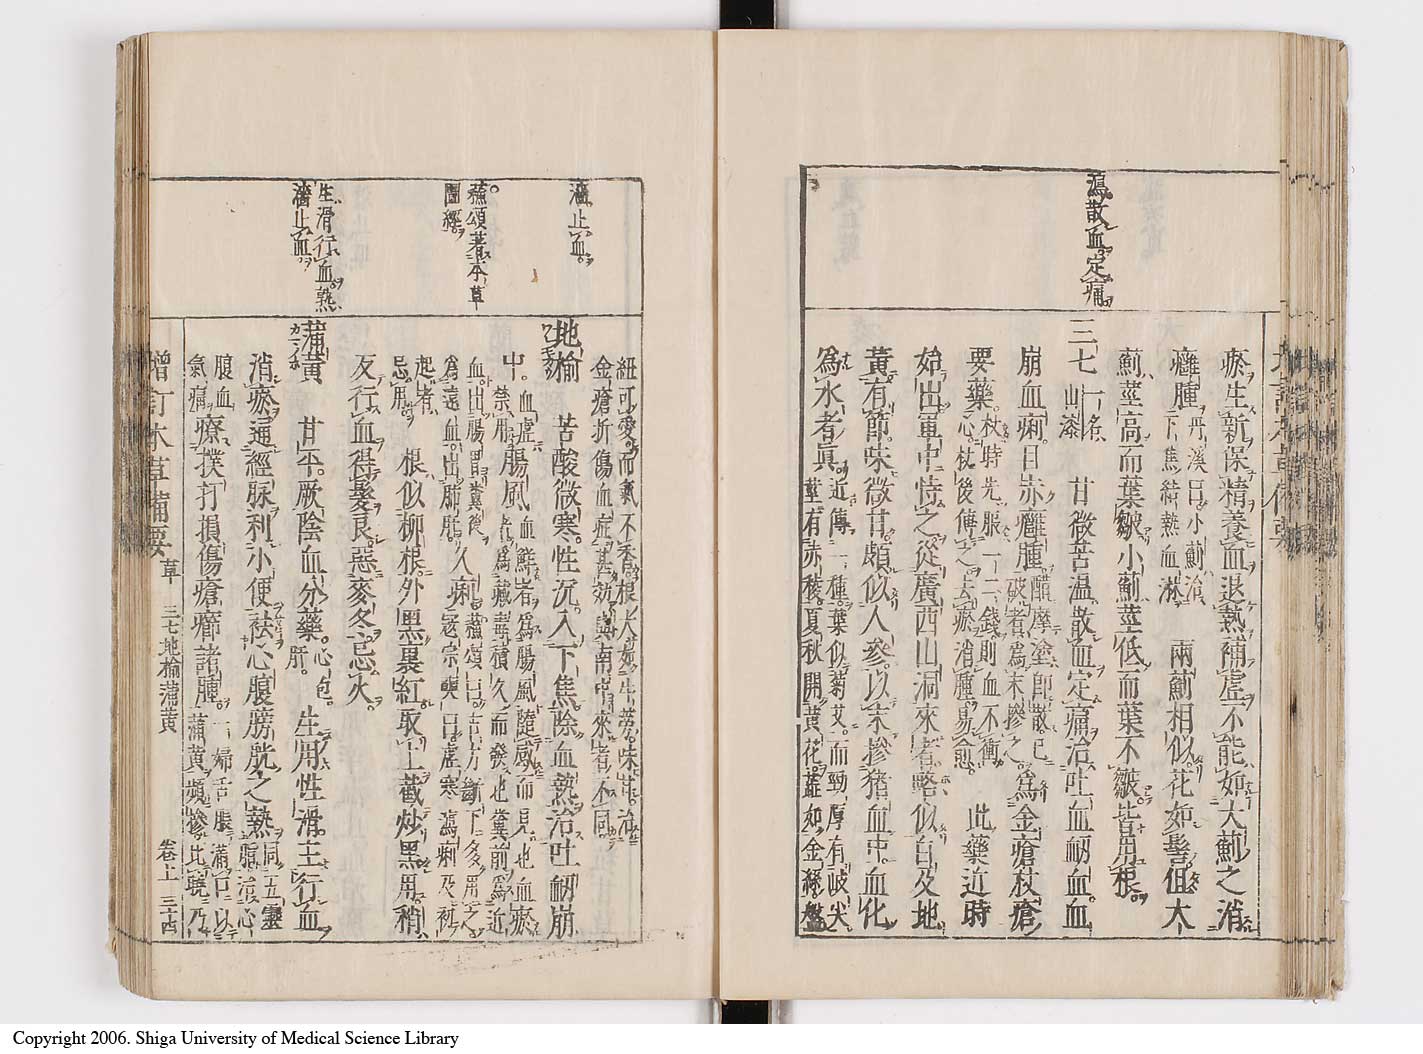 瀉散血定痛
瘀生新保精養血退熱補虛不能如大薊之消
癰腫丹溪曰小薊治下焦結熱血淋兩薊相似花如髻但大
薊莖高而葉皺小薊莖低而葉不皺皆用根
三七一名山漆甘微苦温散血定痛治吐血衂血血
崩血痢目赤癰腫醋摩塗即散已破者為末摻之為金瘡杖瘡
要藥杖時先服一二錢則血不衝心杖後傅之去瘀消腫易愈此藥近時
始出軍中恃之從廣西山洞來者略似白及地
黃有節味微甘頗似人參以末摻猪血中血化
為水者眞近傳一種葉似菊艾而勁厚有岐尖莖有赤稜夏秋開黃花蕋如金絲盤
濇止血
蘇頌著本草
圖經
生滑行血熟
濇止血
紐可愛而氣不香根大如牛蒡味甘治金瘡折傷血症甚効與南中來者不同
地榆苦酸微寒性沉入下焦除血熱治吐衂崩
中血虛禁用腸風血鮮者為腸風隨感而見也血瘀者為藏毒積久而發也糞前為近
血出腸胃糞後為遠血出肺肝久痢蘇頌曰古方斷下多用之寇宗奭曰虛寒瀉痢及初
起者忌用根似柳根外黑裏紅取上截炒黑用稍
反行血得髮良惡麥冬忌火
蒲黃甘平厥陰血分藥心包肝生用性滑主行血
消瘀通經脉利小便祛心腹膀胱之熱同五靈脂治心
腹血氣痛療撲打損傷瘡癤諸腫一婦舌脹滿口以蒲黃頻摻比曉乃
增訂本草備要 草 三七 地榆 蒲黃 卷上 三十四